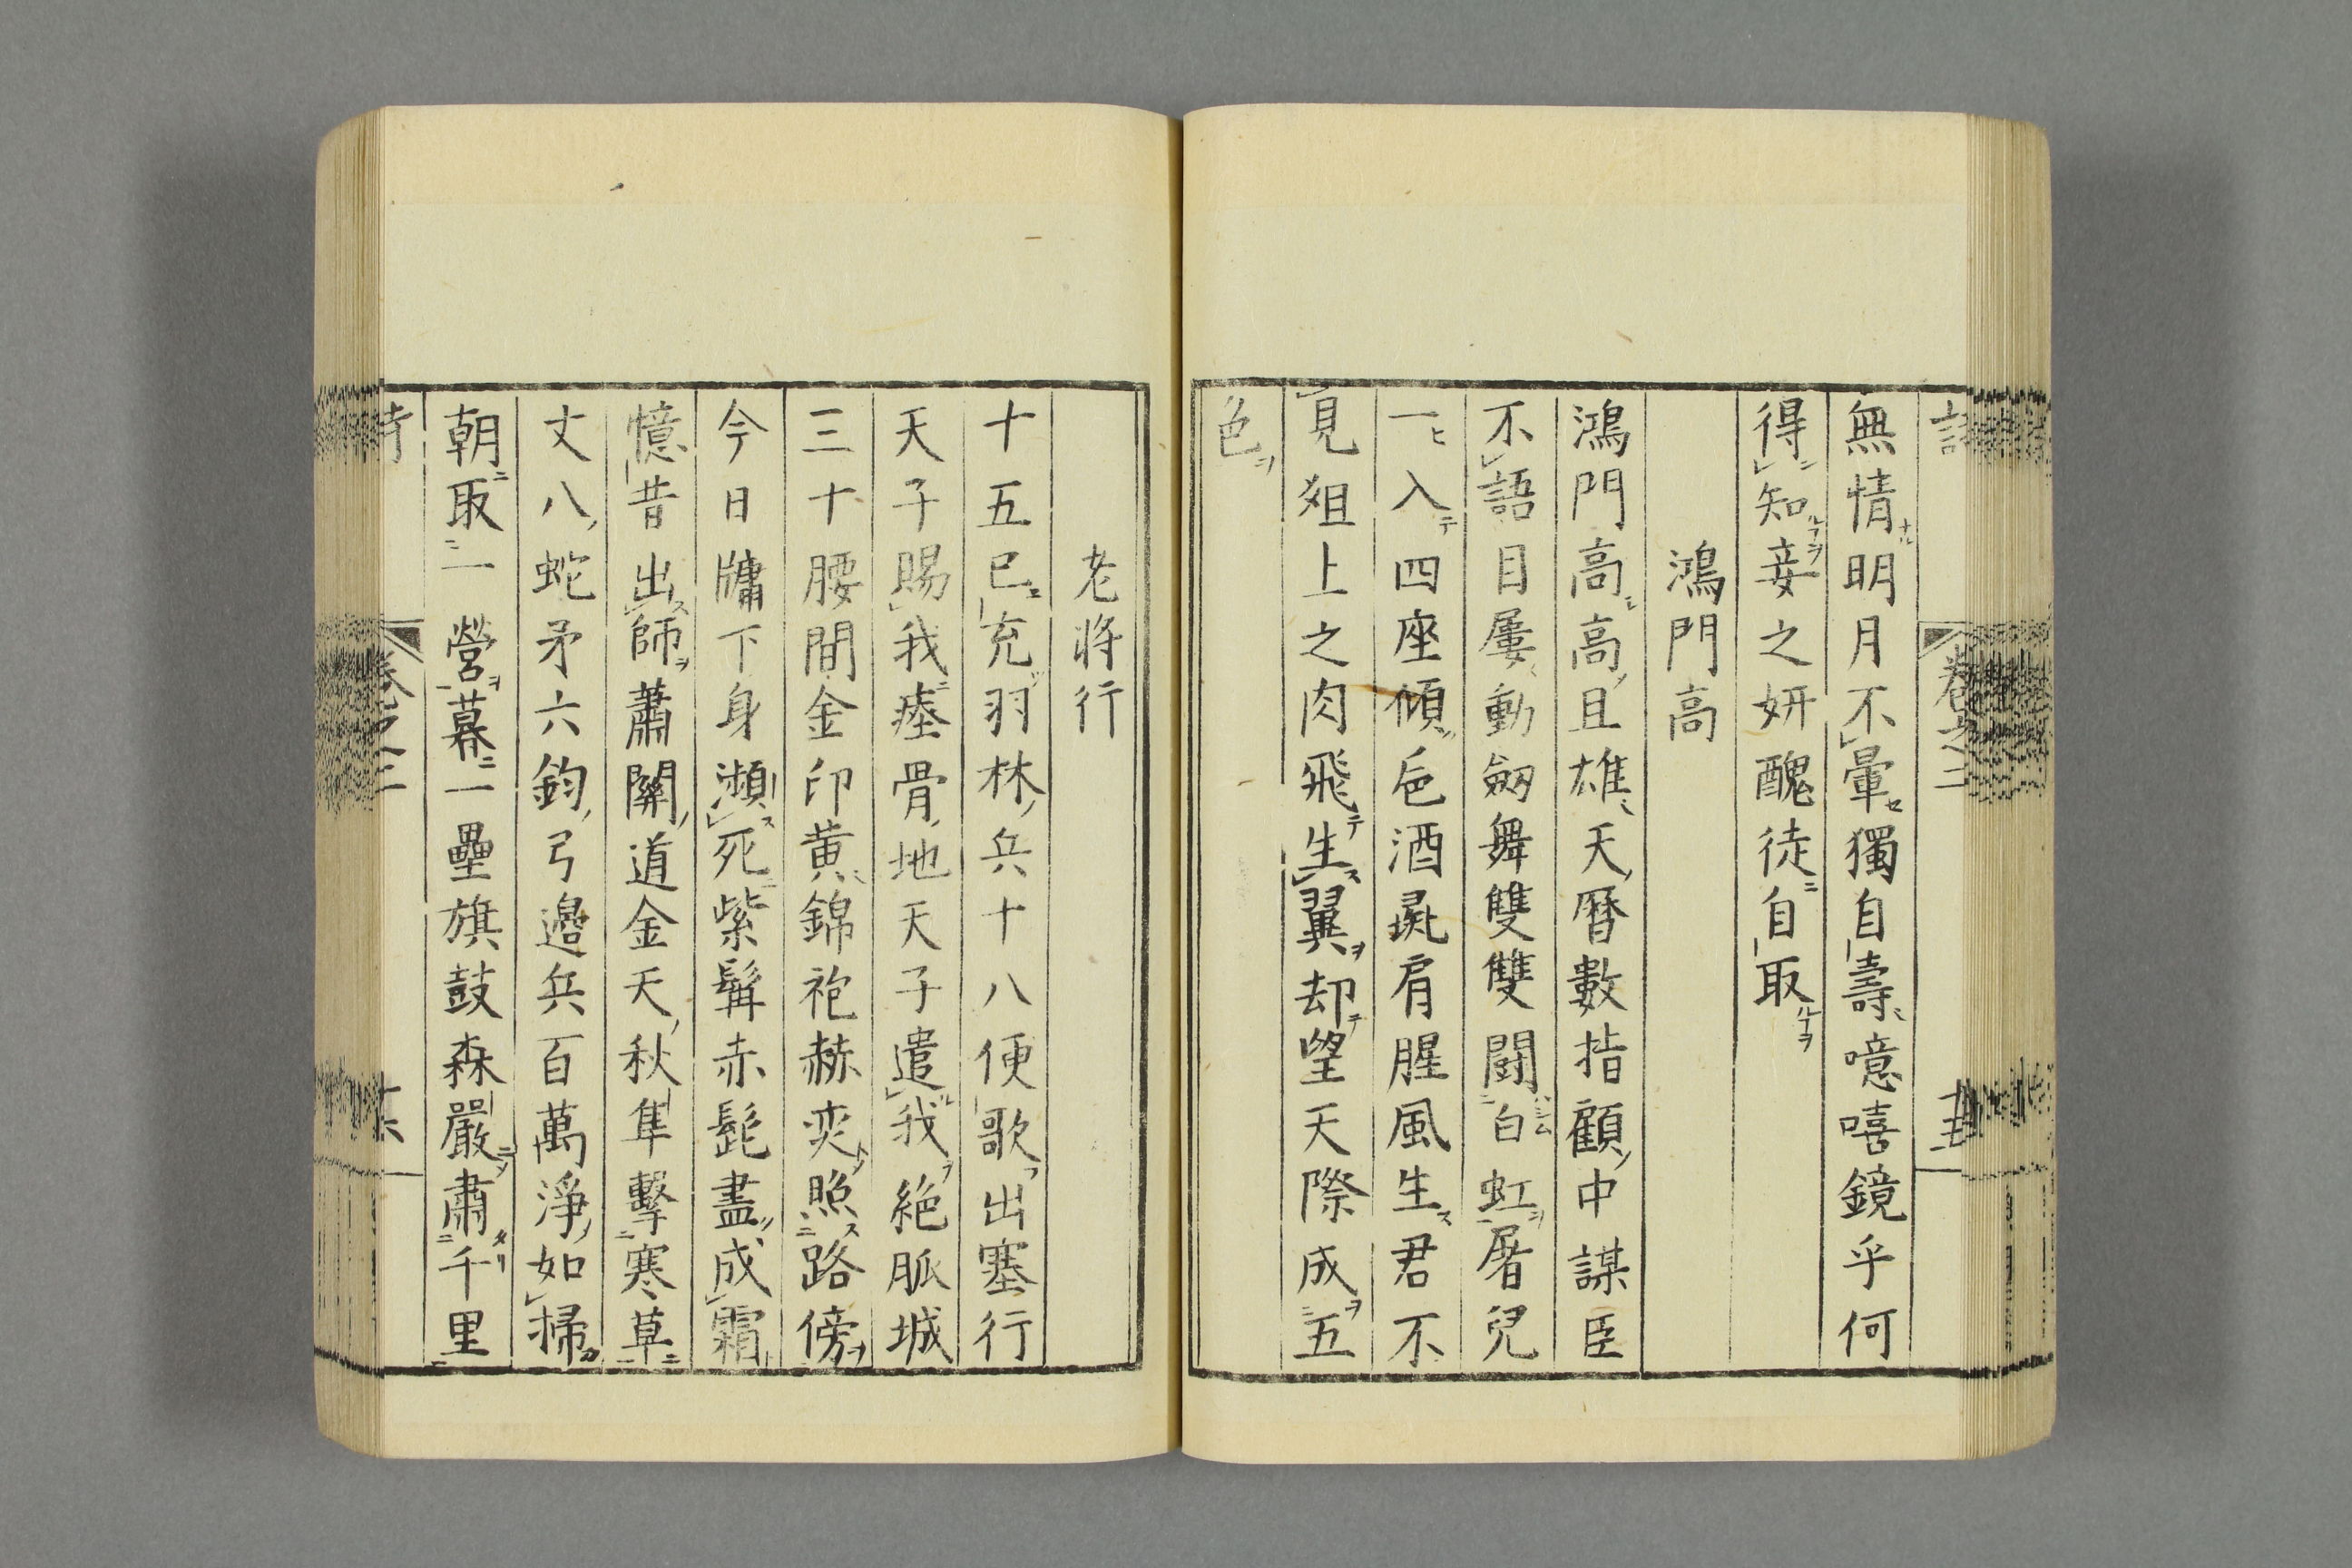 無情明月不暈獨自壽噫嘻鏡乎何
得知妾之妍醜徒自取
鴻門高
鴻門高高且雄天曆數指顧中謀臣
不語目屢動劔舞雙雙鬪白虹屠兒
一入四座傾巵酒彘肩腥風生君不
見俎上之肉飛生翼却望天際成五
色
卷之二
老將行
十五已充羽林兵十八便歌出塞行
天子賜我瘞骨地天子遣我絕脈城
三十腰間金印黃錦袍赫奕照路傍
今日牖下身瀕死紫髯赤髭盡成霜
憶昔出師蕭關道金天秋隼擊寒草
丈八蛇矛六鈞弓邉兵百萬淨如掃
朝取一營暮一壘旗鼓森嚴肅千里
卷之二